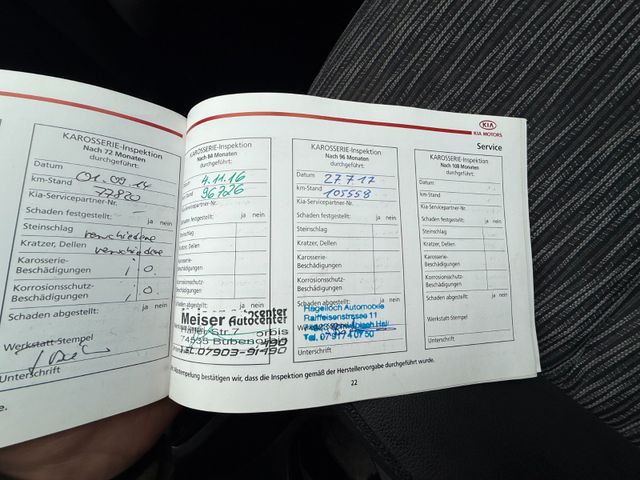 KAROSSERIE-Inspektion
Nach 72 Monaten
durchgeführt:
Datum 01.09.14
km-Stand 77820
Kia-Servicepartner-Nr.
Schaden festgestellt:
ja nein
Steinschlag verschiedene
Kratzer, Dellen verschiedene
Karosserie-
Beschädigungen
Korrosionsschutz-
Beschädigungen
Schaden abgestellt:
ja nein
Werkstatt-Stempel
Unterschrift
e.
KAROSSERIE-Inspektion
Nach 84 Monaten
durchgeführt:
4.11.16
km-Stand 96726
Kia-Servicepartner-Nr.
Schaden festgestellt:
ja nein
Steinschlag
Kratzer, Dellen
Karosserie-
Beschädigungen
Korrosionsschutz-
Beschädigungen
Schaden abgestellt:
Meiser Autocenter
Tel.07903-91490
KIA
KIA MOTORS
Service
KAROSSERIE-Inspektion
Nach 96 Monaten
durchgeführt:
Datum 27.7.17
km-Stand 105558
Kia-Servicepartner-Nr.
Schaden festgestellt:
ja nein
Steinschlag
Kratzer, Dellen
Karosserie-
Beschädigungen
Korrosionsschutz-
Beschädigungen
Schaden abgestellt:
Hagelloch Automobile
Raiffeisenstrasse 11
Hall
Unterschrift
KAROSSERIE-Inspektion
Nach 108 Monaten
durchgeführt:
Datum
km-Stand
Kia-Servicepartner-Nr.
Schaden festgestellt:
ja nein
Steinschlag
Kratzer, Dellen
Karosserie-
Beschädigungen
Korrosionsschutz-
Beschädigungen
Schaden abgestellt:
ja nein
Werkstatt-Stempel
Unterschrift
bestätigen wir, dass die Inspektion gemäß der Herstellervorgabe durchgeführt wurde.
22